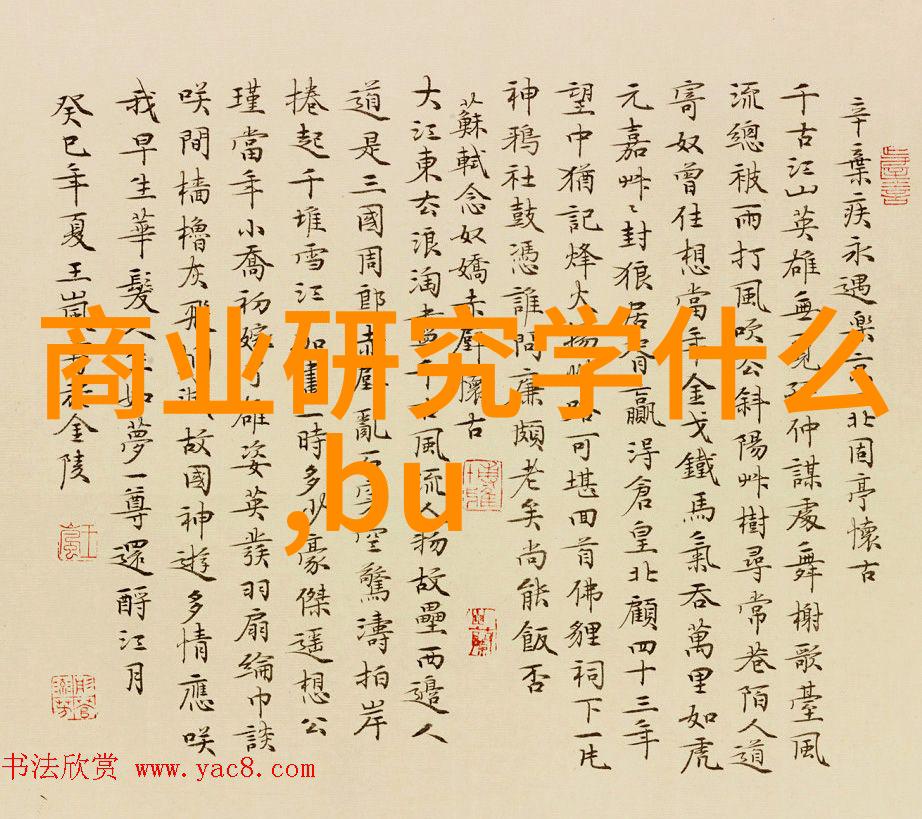 辛棄疾永遇樂京北固亭懷古
千古江山英雄無覓孫仲謀處舞榭歌臺風
流總被雨打風吹去斜陽艸樹尋常巷陌人道
寄奴曾住想當年金戈鐵馬氣吞萬里如虎
元嘉艸〻封狼居胥贏得倉皇北顧四十三年
望中猶記烽火揚州路可堪回首佛貍祠下一片
神鴉社鼓憑誰問廉頗老矣尚能飯否
蘇軾念奴嬌赤壁懷古
大江東去浪淘盡千古風流人物故壘西邊人
道是三國周郎赤壁亂石穿空驚濤拍岸
捲起千堆雪江如畫一時多少豪傑遥想公
瑾當年小喬初嫁了雄姿英發羽扇綸巾談
咲間檣櫓灰飛煙滅故國神遊多情應咲
我早生華髮人生如夢一尊還酹江月
癸巳年夏王嵐書於金陵
商业研究学什么
,bu
书法欣赏 www.yac8.com